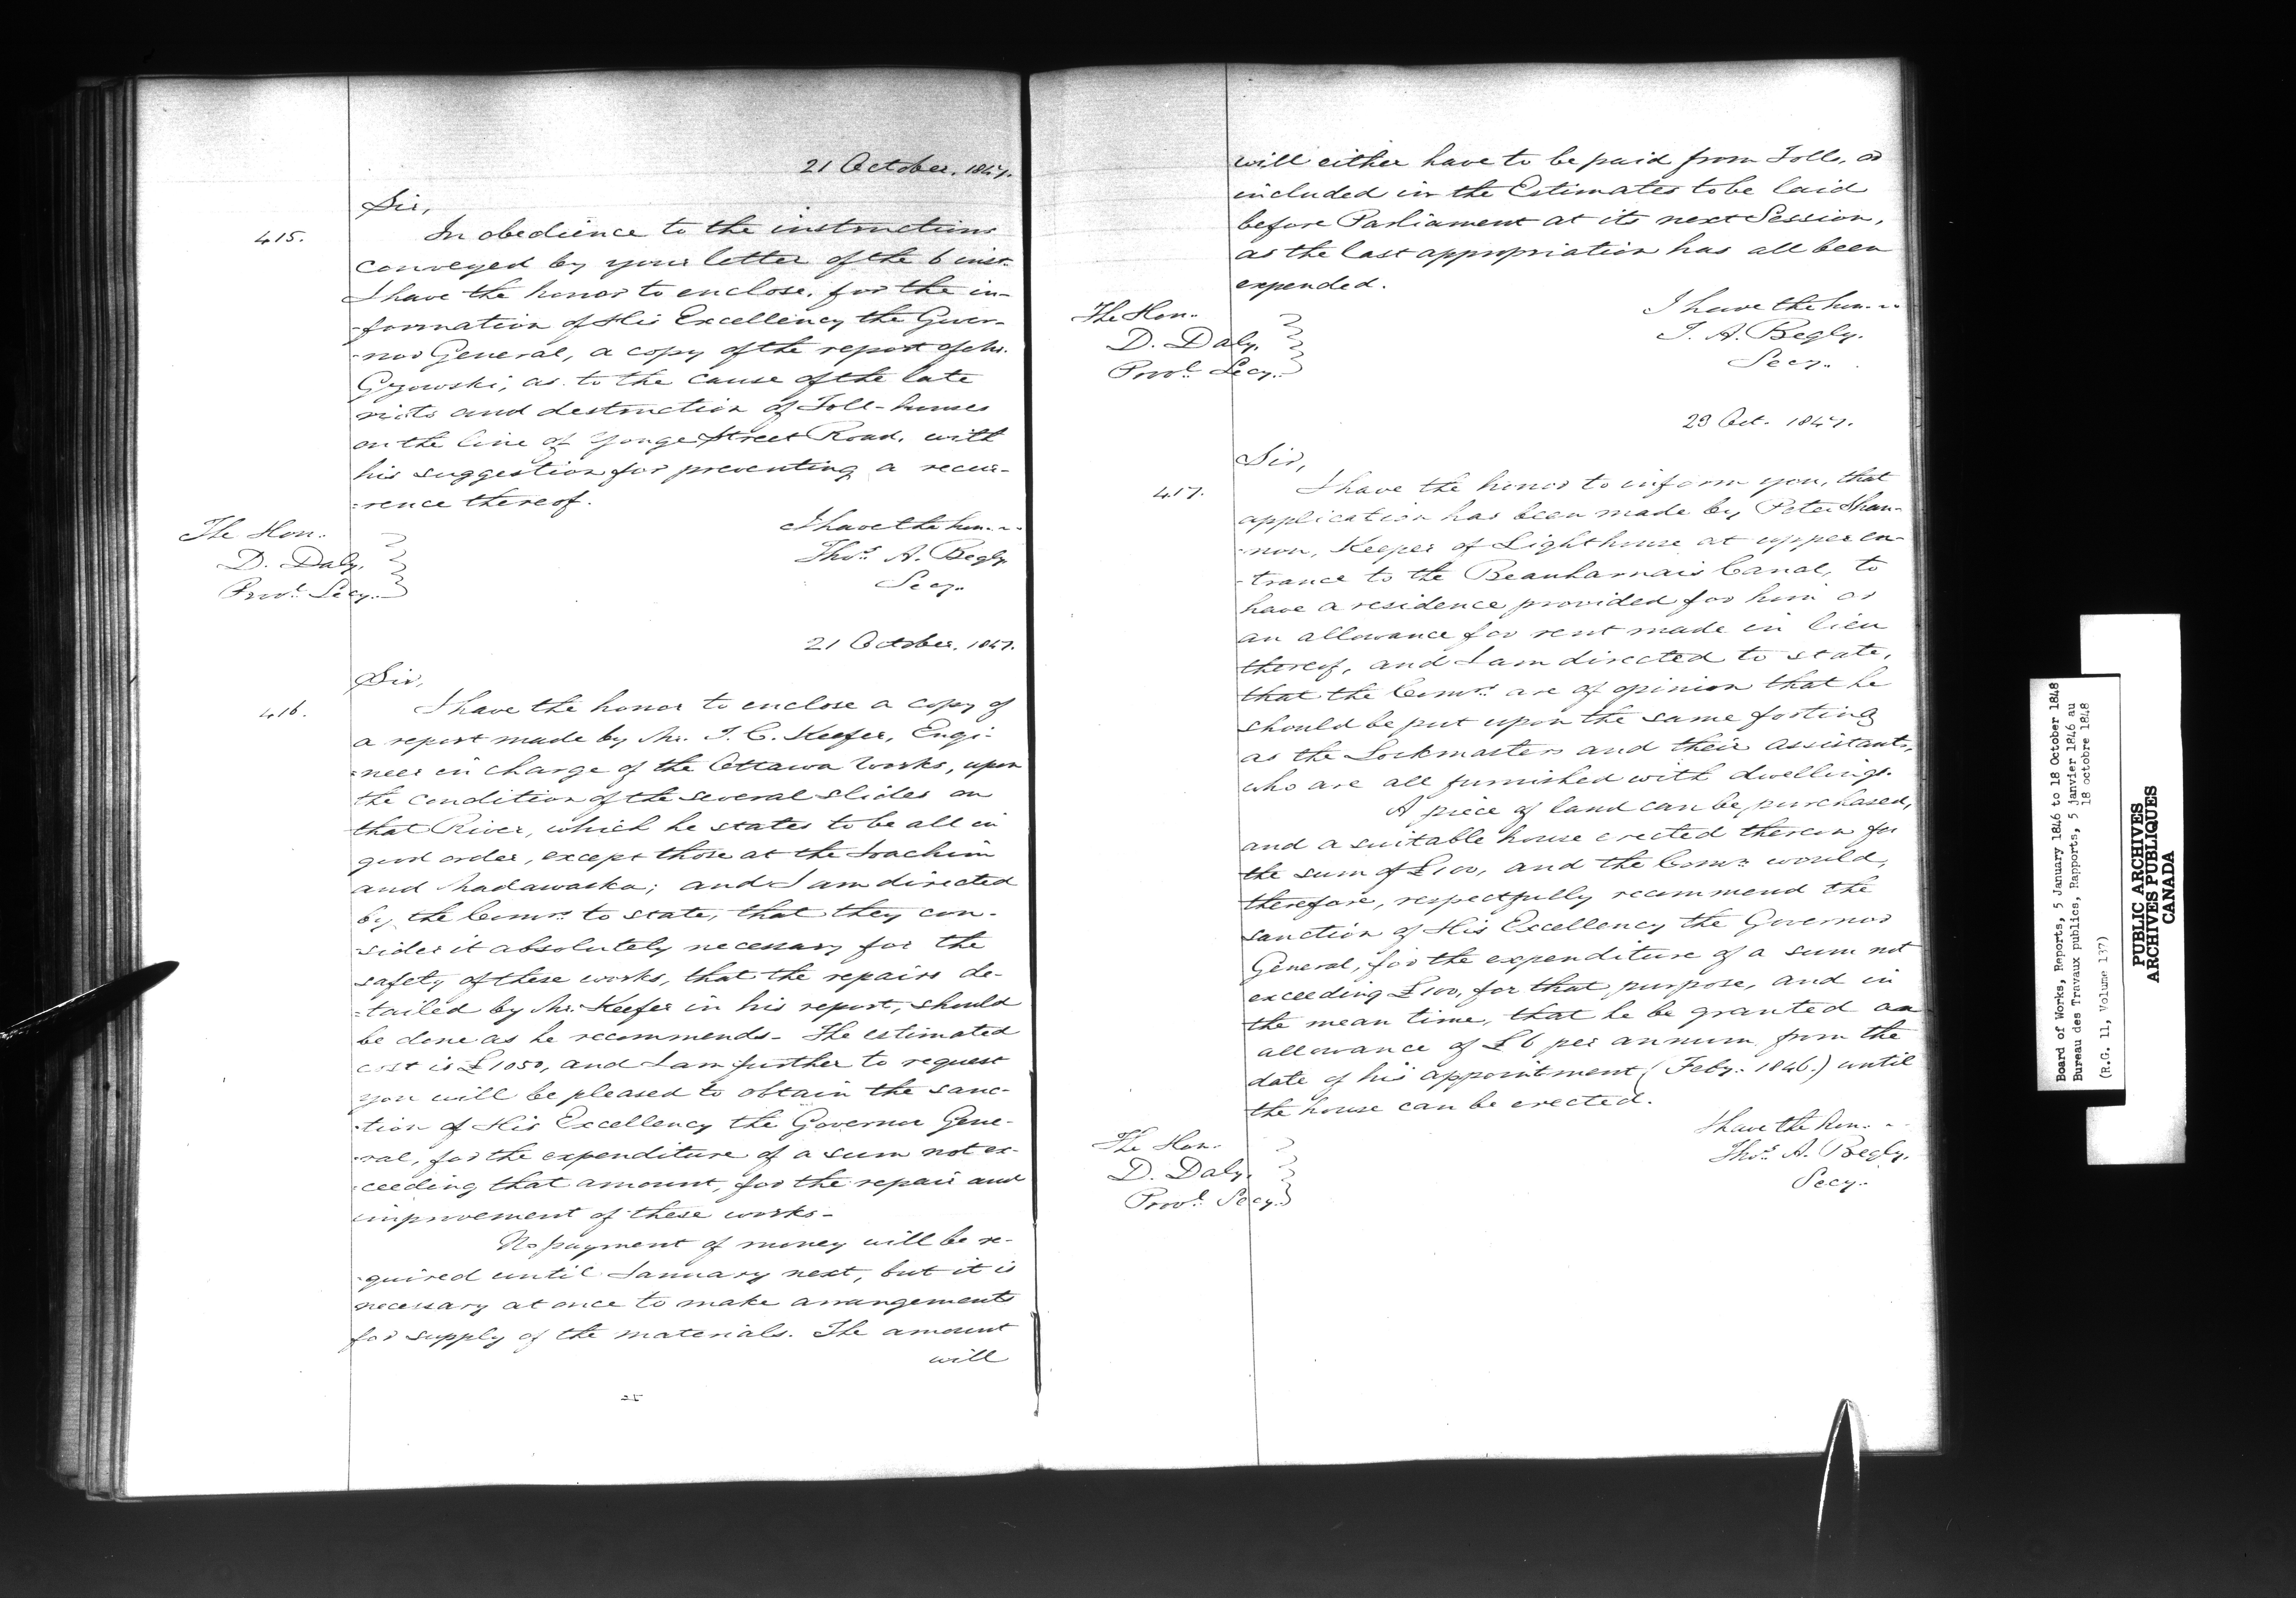 21 October, 1847.
Sir,
415.
In obedience to the instructions
conveyed by your letter of the 6 inst.
I have the honor to enclose, for the in-
-formation of His Excellency the Gover-
-nor General, a copy of the report of Mr.
Gzowski, as to the cause of the late
riots and destruction of Toll-houses
on the line of Yonge Street Road, with
his suggestion for preventing a recur-
-rence thereof.
I have the hon...
Thos. A. Begly
Secy.
The Hon.
D. Daly,
Provl. Secy.
21 October, 1847.
Sir,
416.
I have the honor to enclose a copy of
a report made by Mr. T. C. Keefer, Engi-
-neer in charge of the Ottawa Works, upon
the condition of the several slides on
that River, which he states to be all in
good order, except those at the Joachim
and Madawaska; and I am directed
by the Comrs. to state, that they con-
-sider it absolutely necessary for the
safety of these works, that the repairs de-
-tailed by Mr. Keefer in his report, should
be done as he recommends - The estimated
cost is £1050, and I am further to request
you will be pleased to obtain the sanc-
-tion of His Excellency the Governor Gene-
-ral, for the expenditure of a sum not ex-
-ceeding that amount, for the repair and
improvement of these works -
No payment of money will be re-
-quired until January next, but it is
necessary at once to make arrangements
for supply of the materials. The amount
will
will either have to be paid from Tolls, or
included in the Estimates to be laid
before Parliament at its next Session,
as the last appropriation has all been
expended.
I have the hon...
T. A. Begly.
Secy.
The Hon.
D. Daly,
Provl. Secy.
23 Oct. 1847.
Sir,
417.
I have the honor to inform you, that
application has been made by Peter Shan-
-non, Keeper of Lighthouse at upper en-
-trance to the Beauharnais Canal, to
have a residence provided for him or
an allowance for rent made in lieu
thereof, and I am directed to state,
that the Comrs. are of opinion that he
should be put upon the same footing
as the Lockmasters and their assistants,
who are all furnished with dwellings.
A piece of land can be purchased,
and a suitable house erected thereon for
the sum of £100, and the Comrs. would,
therefore, respectfully recommend the
sanction of His Excellency the Governor
General, for the expenditure of a sum not
exceeding £100, for that purpose, and in
the mean time, that he be granted an
allowance of £6 per annum from the
date of his appointment (Feby. 1846.) until
the house can be erected.
I have the hon...
Thos. A. Begly.
Secy.
The Hon.
D. Daly,
Provl. Secy.
Board of Works, Reports, 5 January 1846 to 18 October 1848
Bureau des Travaux publics, Rapports, 5 janvier 1846 au
18 octobre 1848
(R.G. 11, Volume 137)
PUBLIC ARCHIVES
ARCHIVES PUBLIQUES
CANADA